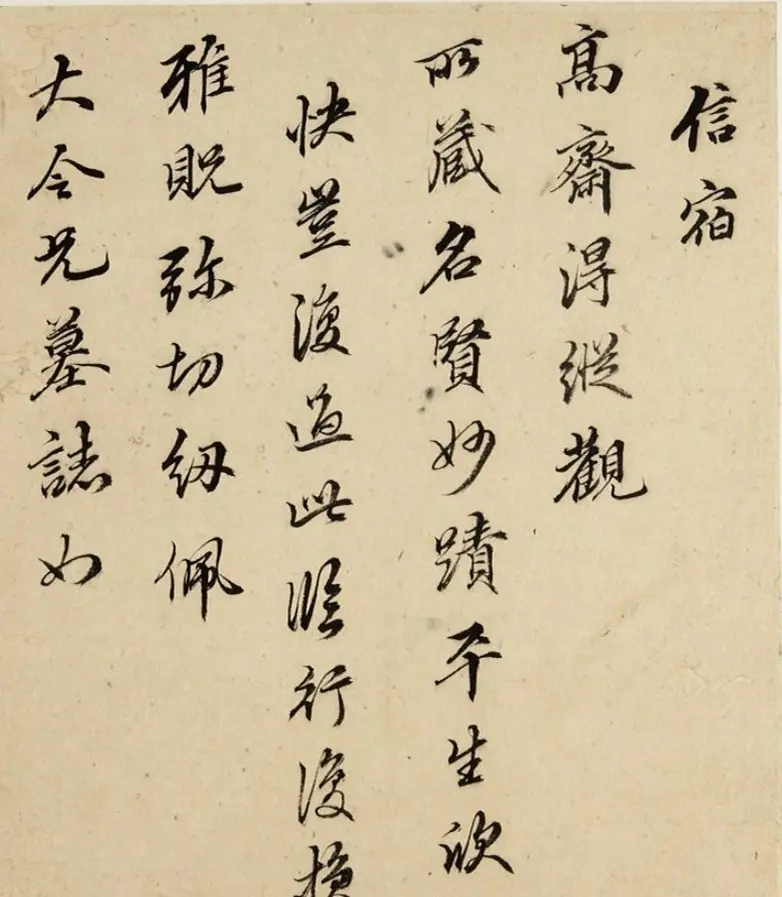 信宿
高齋得縱觀
所藏名賢妙蹟平生欣
快豈復過此臨行復損
雅貺弥切纫佩
大令兄墓誌如